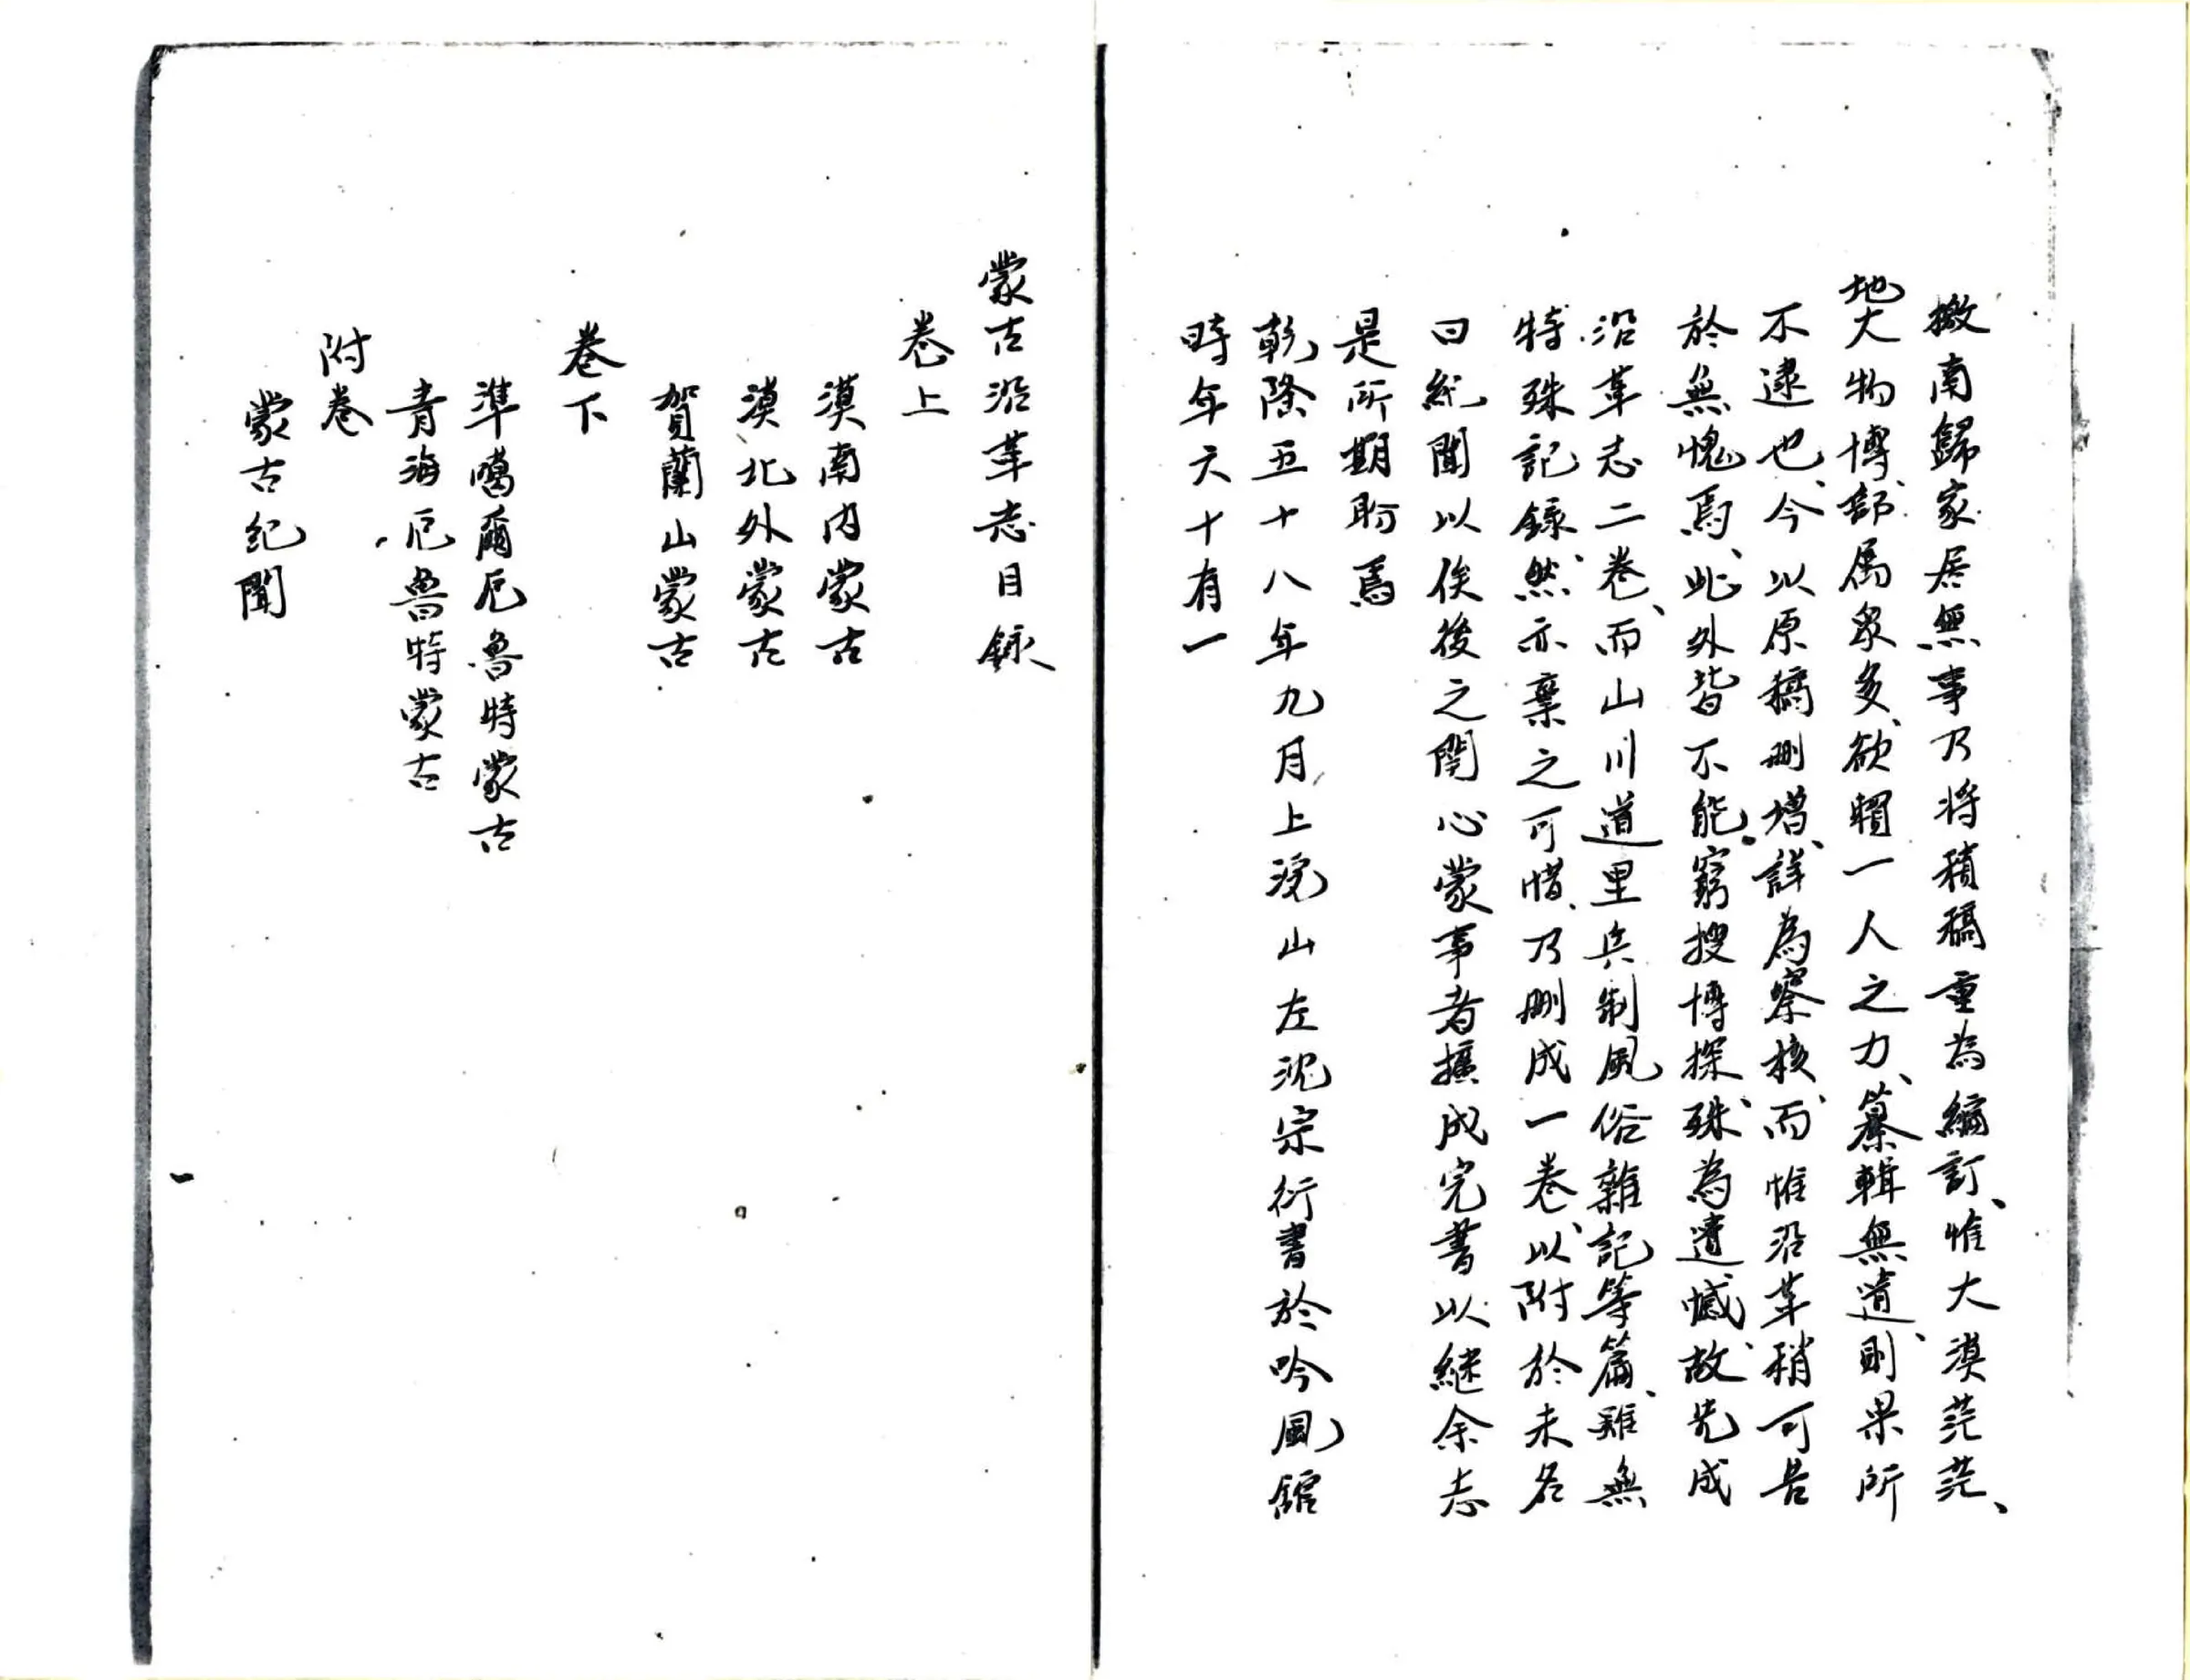 撤南歸家居無事乃將積稿重為編訂、惟大漠茫茫、
地大物博、部屬眾多、欲賴一人之力、纂輯無遺、則果所
不逮也、今以原稿刪增、詳為察核、而惟沿革稍可告
於無愧焉、此外皆不能窮搜博探、殊為遺憾、故先成
沿革志二卷、而山川道里兵制風俗雜記等篇、雖無
特殊記錄、然亦棄之可惜、乃刪成一卷、以附於末名
曰紀聞以俟後之關心蒙事者擴成完書以繼余志
是所期盼焉
乾隆五十八年九月上浣山左沈宗衍書於吟風館
時年六十有一
蒙古沿革志目錄
卷上
漠南內蒙古
漠北外蒙古
賀蘭山蒙古
卷下
準噶爾厄魯特蒙古
青海厄魯特蒙古
附卷
蒙古紀聞